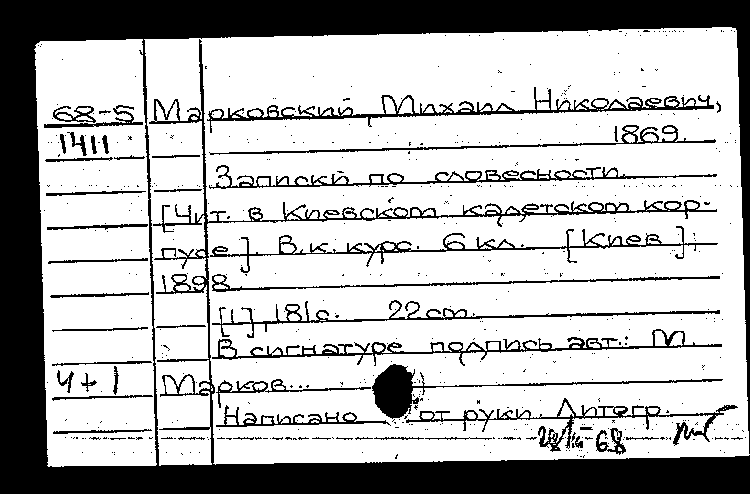 68-5 Марковский, Михаил Николаевич,
1411 1869.
Записки по словесности.
[Чит. в Киевском кадетском кор-
пусе]. В.к. курс. 6 кл. [Киев],
1898.
[1], 181с. 22 cm.
В сигнатуре подпись авт.: М.
4+1 Марков...
Написано от руки. Литогр.
28/III-68